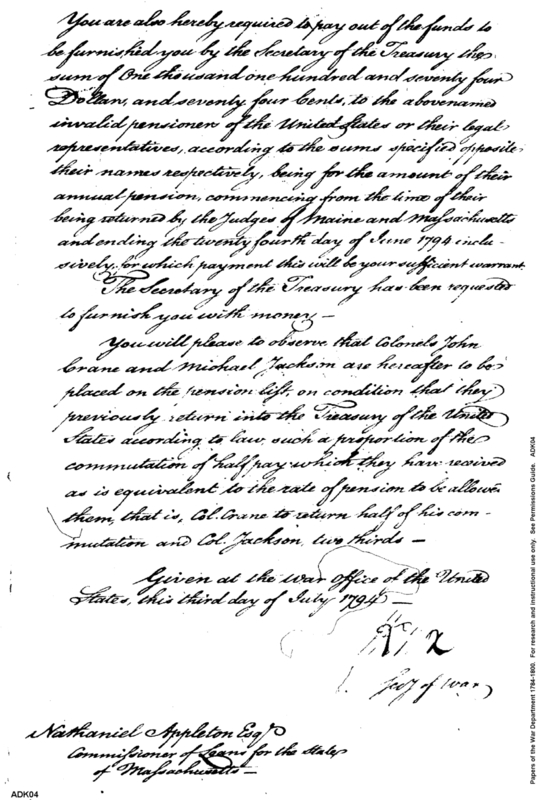 You are also hereby required to pay out of the funds to
be furnished you by the Secretary of the Treasury the
sum of One thousand one hundred and seventy four
Dollars, and seventy four Cents, to the abovenamed
invalid pensioner of the United States or their legal
representatives, according to the sums specified opposite
their names respectively, being for the amount of their
annual pension, commencing from the time of their
being returned by the Judges of Maine and Massachusetts
and ending the twenty fourth day of June 1794 inclu-
sively, for which payment this will be your sufficient warrant.
The Secretary of the Treasury has been requested
to furnish you with money —
You will please to observe that Colonels John
Crane and Michael Jackson are hereafter to be
placed on the pension list, on condition that they
previously return into the Treasury of the United
States according to law, such a proportion of the
commutation of half pay which they have received
as is equivalent to the rate of pension to be allowed
them, that is, Col. Crane to return half of his com-
mutation and Col. Jackson, two thirds —
Given at the War Office of the United
States, this third day of July 1794 —
Secy of War
Nathaniel Appleton Esqr
Commissioner of Loans for the State
of Massachusetts —
ADK04
Papers of the War Department 1784-1800. For research and instructional use only. See Permissions Guide. ADK04